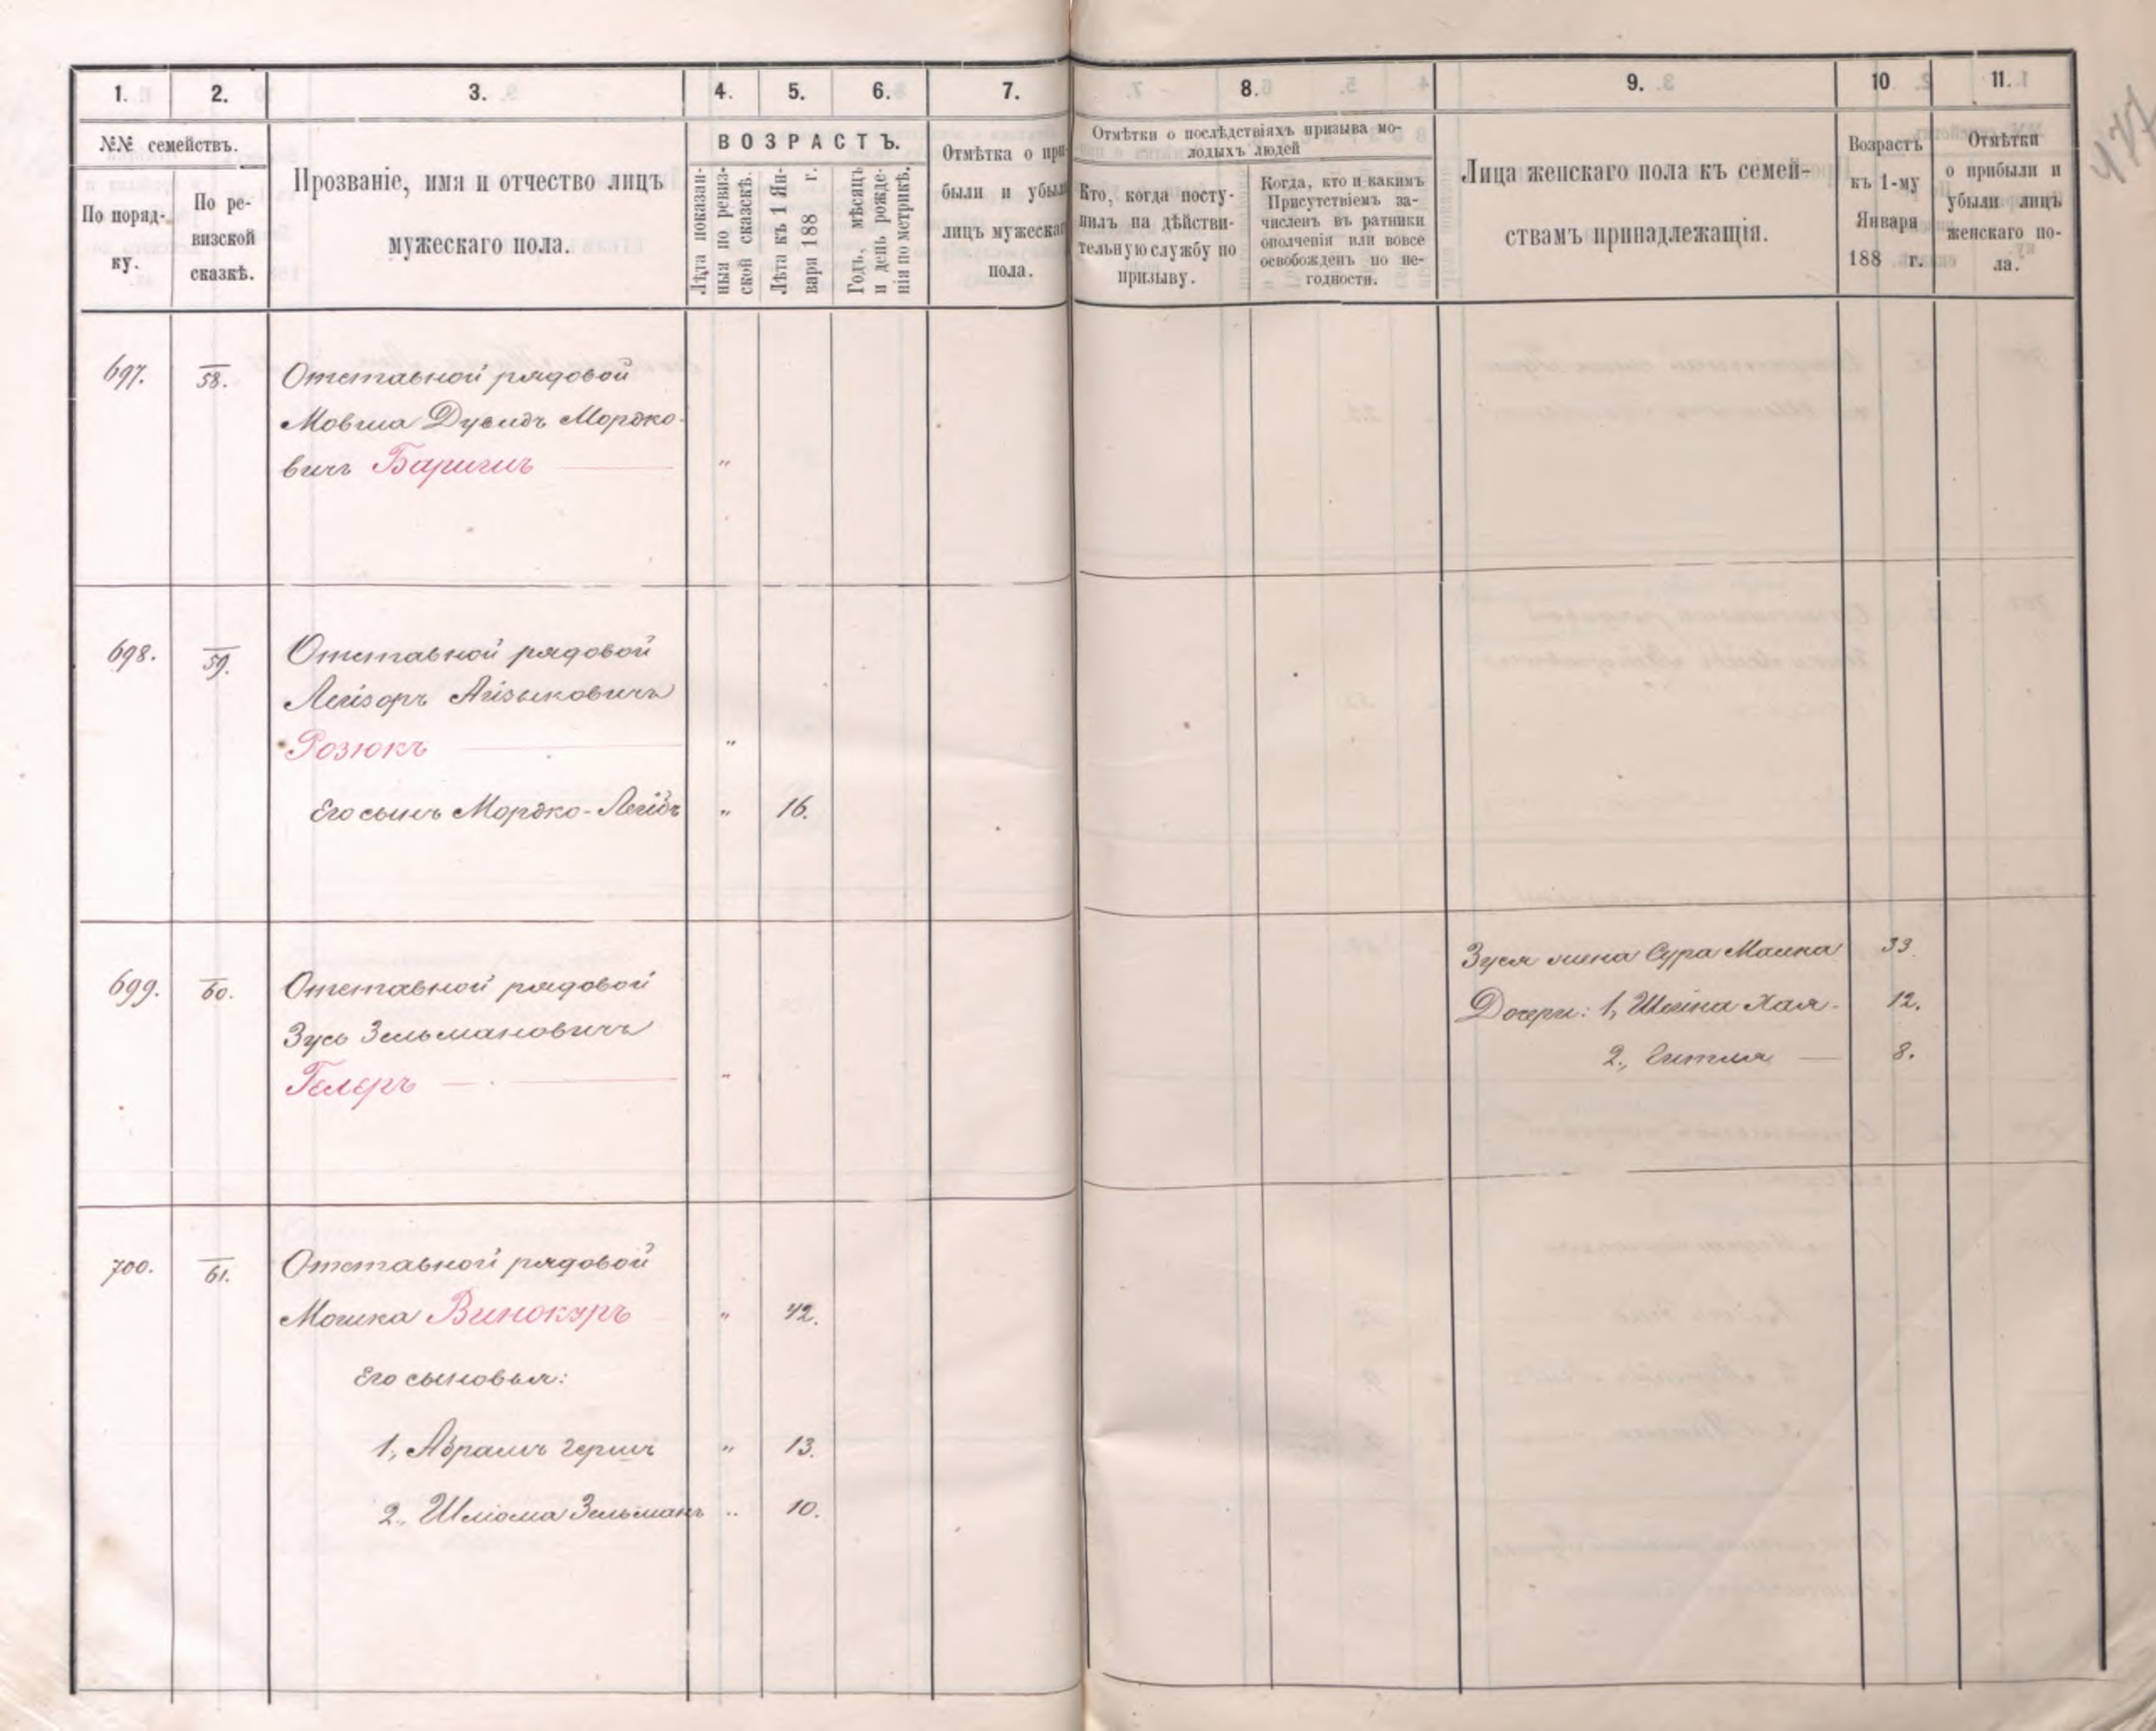 1. 2. 3. 4. 5. 6. 7. 8. 9. 10 11.
№№ семействъ.
По поряд-
ку.
По ре-
визской
сказкѣ.
Прозваніе, имя и отчество лицъ
мужескаго пола.
ВОЗРАСТЪ.
Лѣта показан-
ныя по ревиз-
ской сказкѣ.
Лѣта къ 1 Ян-
варя 188 г.
Годъ, мѣсяцъ
и день рожде-
нія по метрикѣ.
Отмѣтка о при-
были и убыли
лицъ мужескаго
пола.
Отмѣтки о послѣдствіяхъ призыва мо-
лодыхъ людей
Кто, когда посту-
пилъ на дѣйстви-
тельную службу по
призыву.
Когда, кто и какимъ
Присутствіемъ за-
численъ въ ратники
ополченія или вовсе
освобожденъ по не-
годности.
Лица женскаго пола къ семей-
ствамъ принадлежащія.
Возрастъ
къ 1-му
Января
188 г.
Отмѣтки
о прибыли и
убыли лицъ
женскаго по-
ла.
697. 58. Отставной рядовой
Мовша Дувидъ Мордко-
вичъ Баригинъ "
698. 59. Отставной рядовой
Лейзоръ Айзыковичъ
Розюкъ "
Его сынъ Мордко-Лейбъ " 16.
699. 60. Отставной рядовой
Зусь Зельмановичъ
Гелеръ "
Зуся жена Сура Малка 33.
Дочери: 1, Шейна Хая- 12.
2., Гитля 8.
700. 61. Отставной рядовой
Мошка Винокуръ " 42.
Его сыновья:
1, Абрамъ Гершъ " 13.
2., Шлiома Зельманъ " 10.